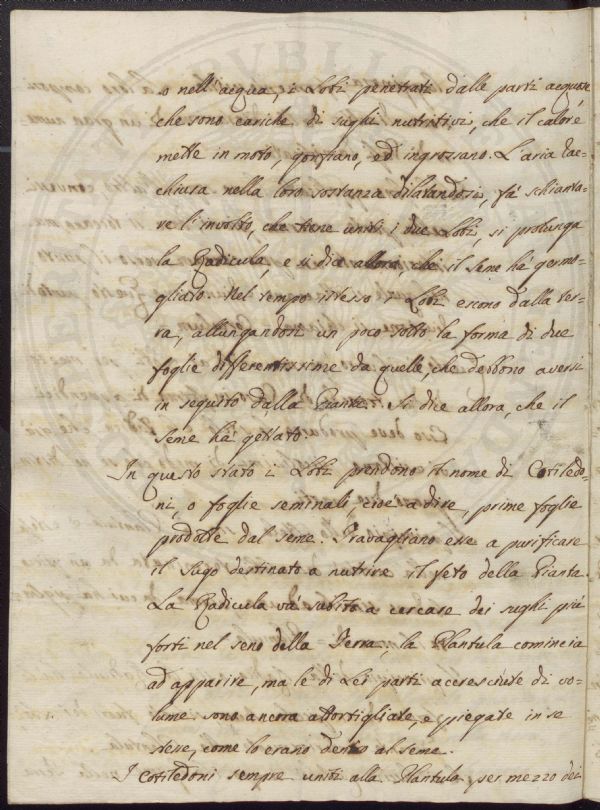 o nell'acqua, i Lobi penetrati dalle parti acquose
che sono cariche di sughi nutritivi, che il calore
mette in moto, gonfiano, ed ingrossano. L'aria rac-
chiusa nella loro sostanza dilatandosi, fa' schianta-
re l'involto, che tiene uniti i due Lobi, si prolunga
la Radicula, e si dice allora, che il seme ha germo-
gliato. Nel tempo istesso i Lobi escono dalla ter-
ra, allungandosi un poco sotto la forma di due
foglie differentissime da quelle, che debbono aversi
in seguito dalla Pianta. Si dice allora, che il
seme ha gettato.
In questo stato i Lobi prendono il nome di Cotiledo-
ni, o foglie seminali, cioè a dire, prime foglie
prodotte dal seme. Travagliano esse a purificare
il sugo destinato a nutrire il feto della Pianta.
La Radicula và subito a cercare dei sughi più
forti nel seno della Terra; la Plantula comincia
ad apparire, ma le di Lei parti accresciute di vo-
lume sono ancora attortigliate, e piegate in se
stesse, come lo erano dentro al seme.
I cotiledoni sempre uniti alla Plantula per mezzo dei